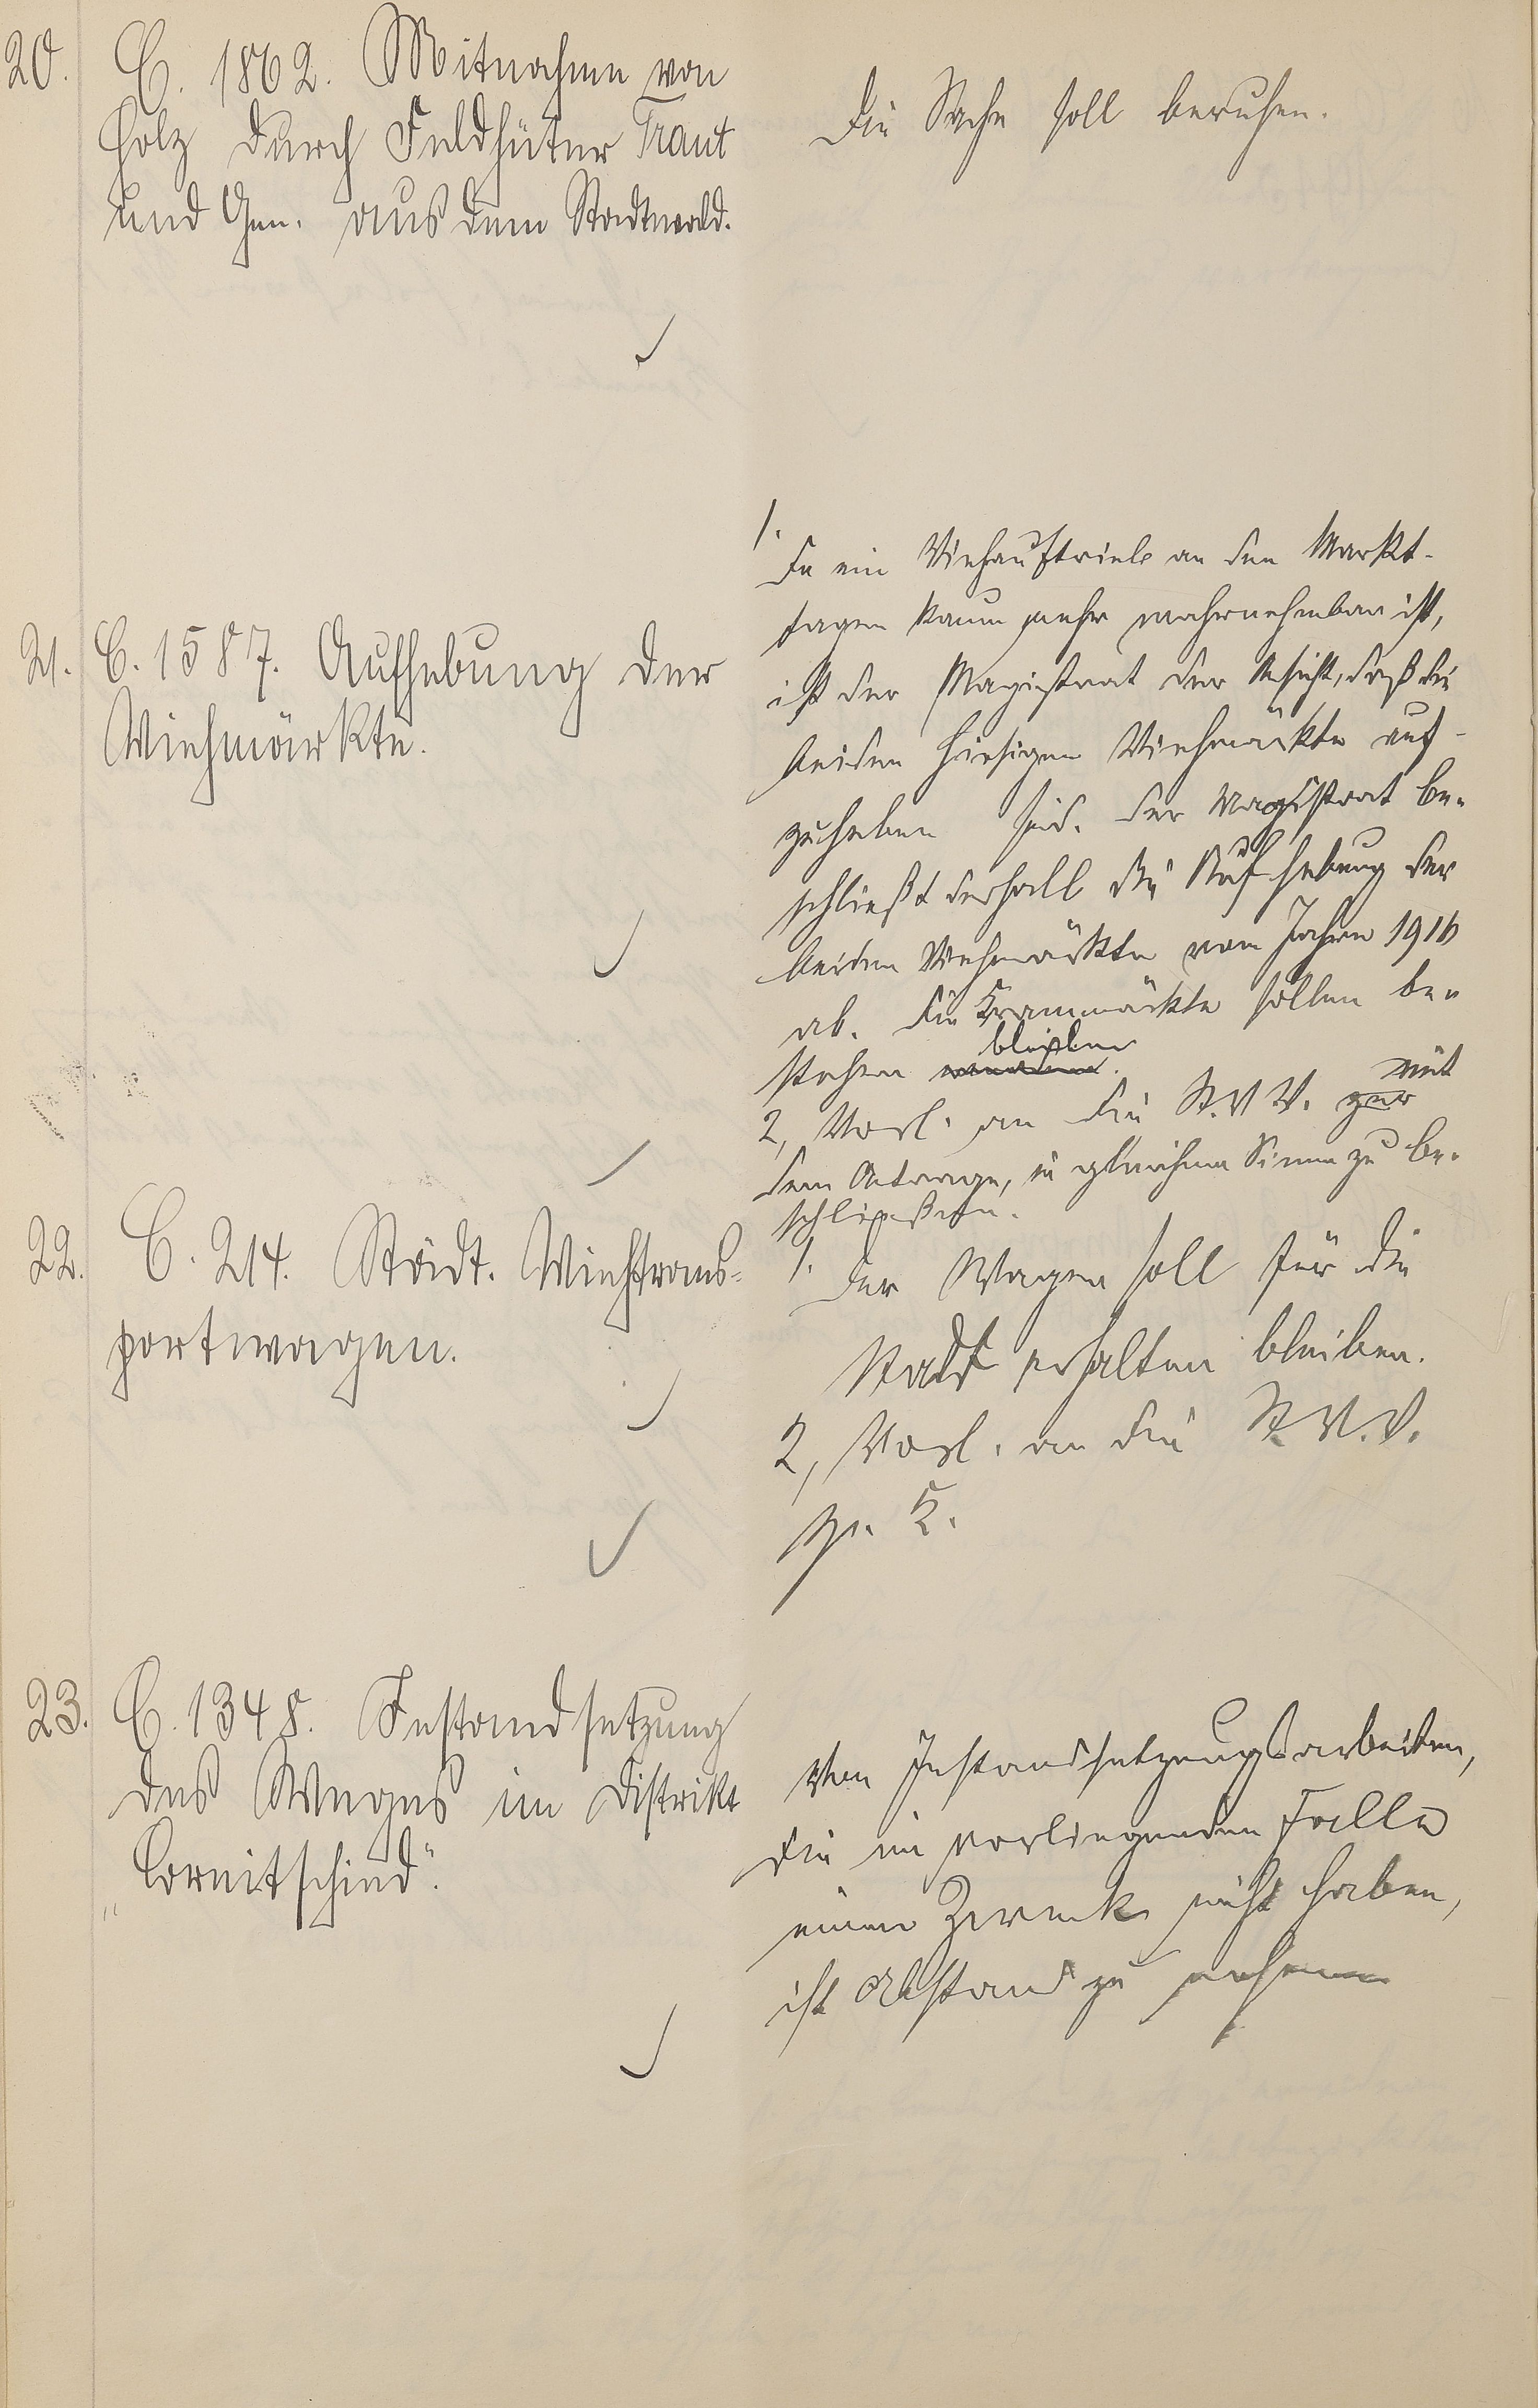 20. C. 1862. Mitnahme von
Holz durch Feldhüter Traut
und Gen. aus dem Stadtwald.
Die Sache soll beruhen.
21. C. 1587. Aufhebung der
Viehmärkte.
1.
Da ein Viehauftrieb an den Markt-
tagen kaum mehr wahrnehmbar ist,
ist der Magistrat der Ansicht, daß die
beiden hiesigen Viehmärkte auf-
zuheben sind. Der Magistrat be-
schließt deshalb die Aufhebung der
beiden Viehmärkte vom Jahre 1916
ab. Die Krammärkte sollen be-
bleiben
stehen
mit
2, Vorl. an die St.V.V. zur
dem Antrage, in gleichem Sinne zu be-
schließen.
22. C. 214. Städt. Viehtrans-
portwagen.
1. Der Wagen soll für die
Stadt erhalten bleiben.
2, Vorl. an die St.V.V.
z. K.
23. C. 1348. Instandsetzung
des Weges im Distrikt
„Cornitschied".
Von Instandsetzungsarbeiten,
die im vorliegenden Falle
einen Zweck nicht haben,
ist Abstand zu nehmen